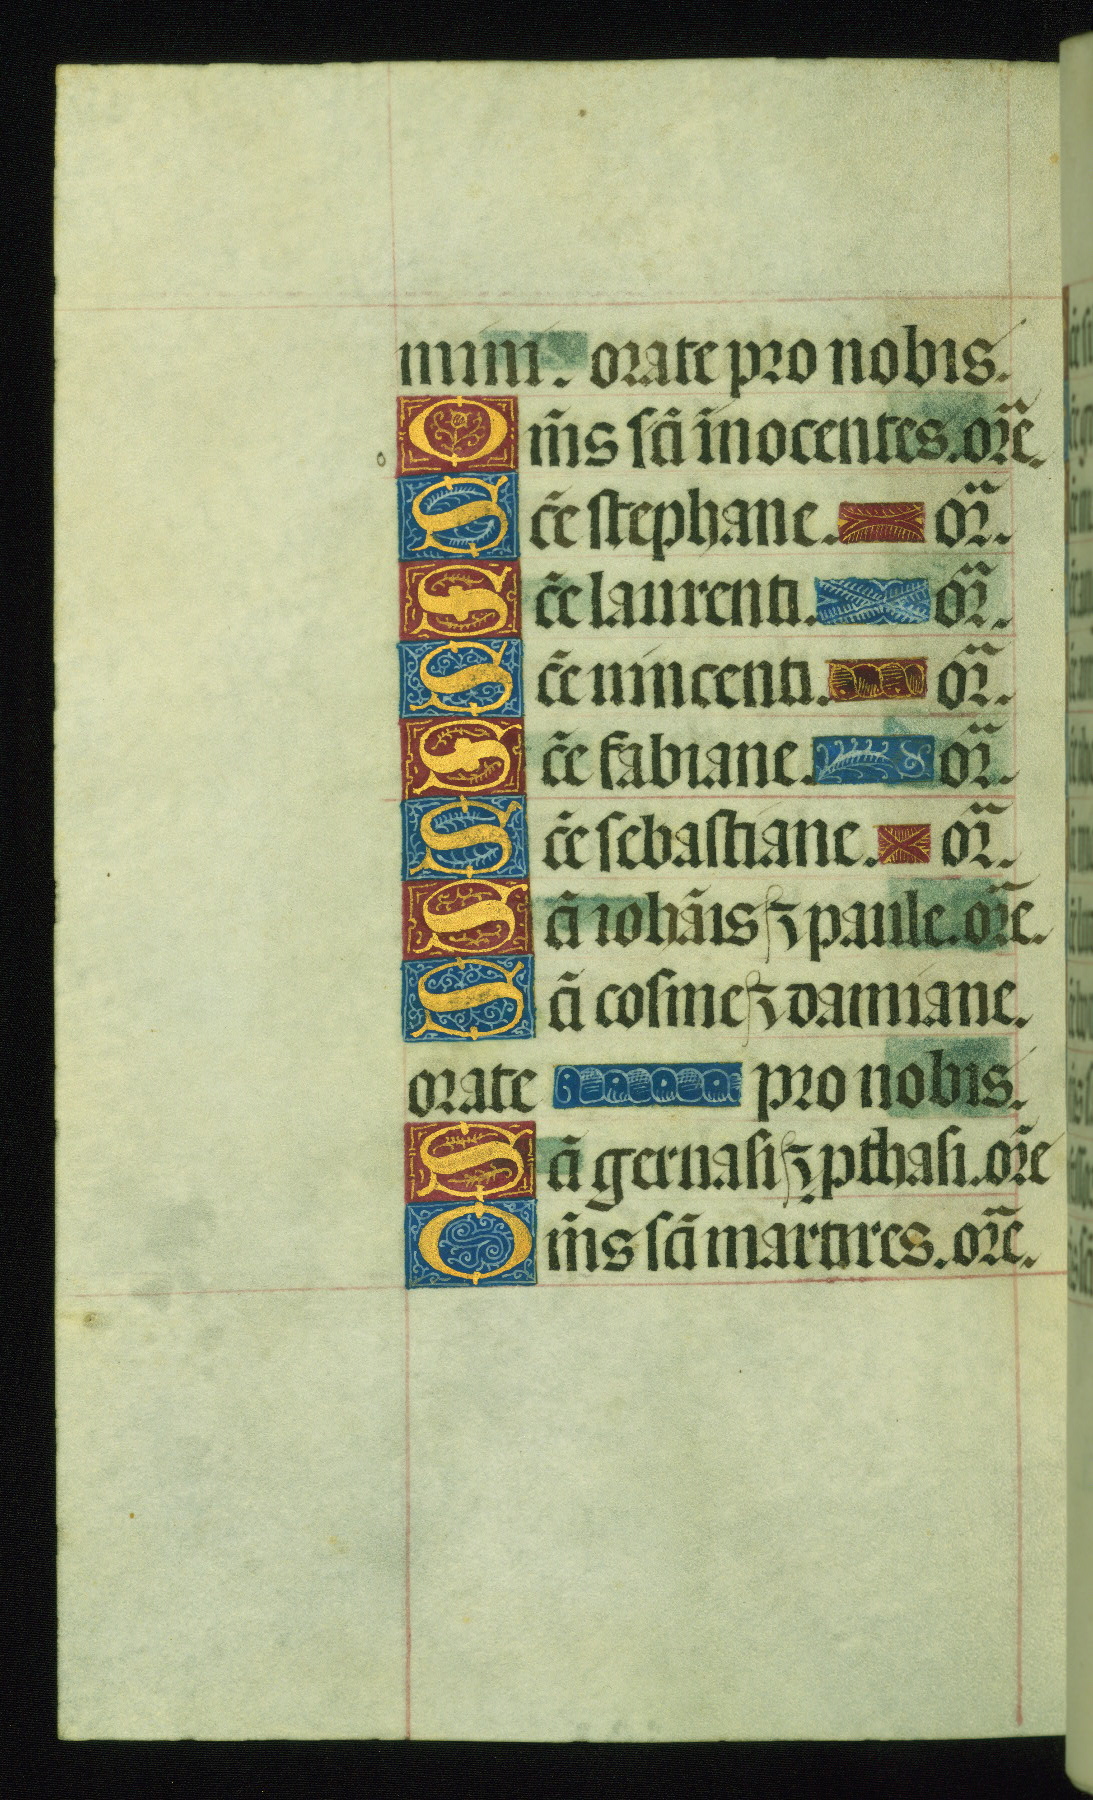 mini. orate pro nobis.
Om̃s sc̃i in̄ocentes. or̃e.
Sc̃e stephane. or̃.
Sc̃e laurenti. or̃.
Sc̃e vincenti. or̃.
Sc̃e fabiane. or̃.
Sc̃e sebastiane. or̃.
Sc̃i iohãis ⁊ paule. or̃e.
Sc̃i cosme ⁊ damiane.
orate pro nobis.
Sc̃i geruasi ⁊ pthasi. or̃e
Om̃s sc̃i martires. or̃e.